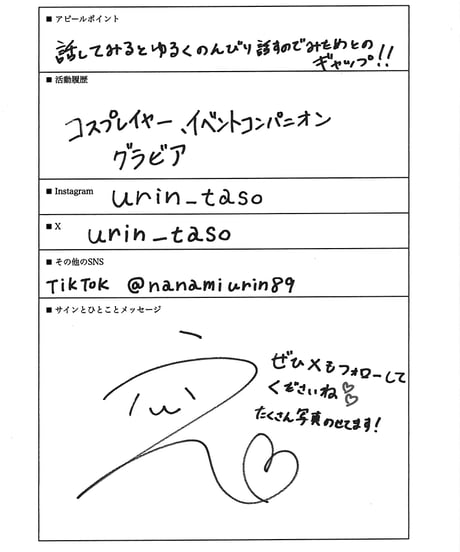 ■ アピールポイント
話してみるとゆるくのんびり話すのでみためとの
ギャップ!!
■ 活動履歴
コスプレイヤー、イベントコンパニオン
グラビア
■ Instagram
urin_taso
■ X
urin_taso
■ その他のSNS
TikTok @nanamiurin89
■ サインとひとことメッセージ
ぜひXもフォローして
くださいね♡♡
たくさん写真のせてます!